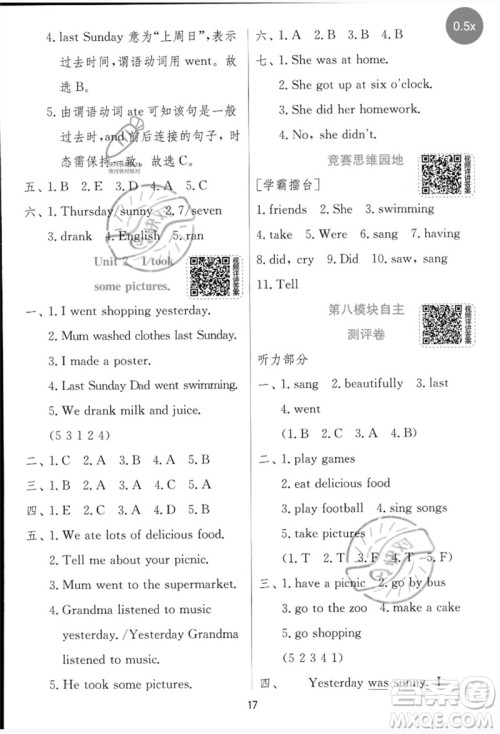 0.5x
4. last Sunday 意为“上周日”，表示
过去时间，谓语动词用 went。故
选 B。
5. 由谓语动词 ate 可知该句是一般
过去时，and前后连接的句子，时
态需保持一致。故选 C。
五、1. B 2. A 3. D 4. E 5. C
六、1. Thursday/sunny 2. 7/seven
3. drank 4. English 5. ran
Unit 2 I took
some pictures.
一、1. I went shopping yesterday.
2. Mum washed clothes last Sunday.
3. I made a poster.
4. Last Sunday Dad went swimming.
5. We drank milk and juice.
(5 3 1 2 4)
二、1. C 2. A 3. B 4. A 5. B
三、1. B 2. A 3. A 4. A 5. B
四、1. E 2. D 3. A 4. C 5. B
五、1. We ate lots of delicious food.
2. Tell me about your picnic.
3. Mum went to the supermarket.
4. Grandma listened to music
yesterday. /Yesterday Grandma
listened to music.
5. He took some pictures.
六、1. D 2. A 3. C 4. B
七、1. She was at home.
2. She got up at six o'clock.
3. She did her homework.
4. No, she didn't.
竞赛思维园地
[学霸擂台]
1. friends 2. She 3. swimming
4. take 5. Were 6. sang 7. having
8. did, cry 9. Did 10. saw
11. Tell
第八模块自主
测评卷
听力部分
一、1. sang 2. beautifully 3. last
4. went
(1. B 2. A 3. A 4. B)
二、1. play games
2. eat delicious food
3. play football 4. sing songs
5. take pictures
(1. T 2. T 3. F 4. T 5. F)
三、1. have a picnic 2. go by bus
3. go to the zoo 4. make a cake
5. go shopping
(5 2 3 4 1)
四、 Yesterday was sunny. I
17